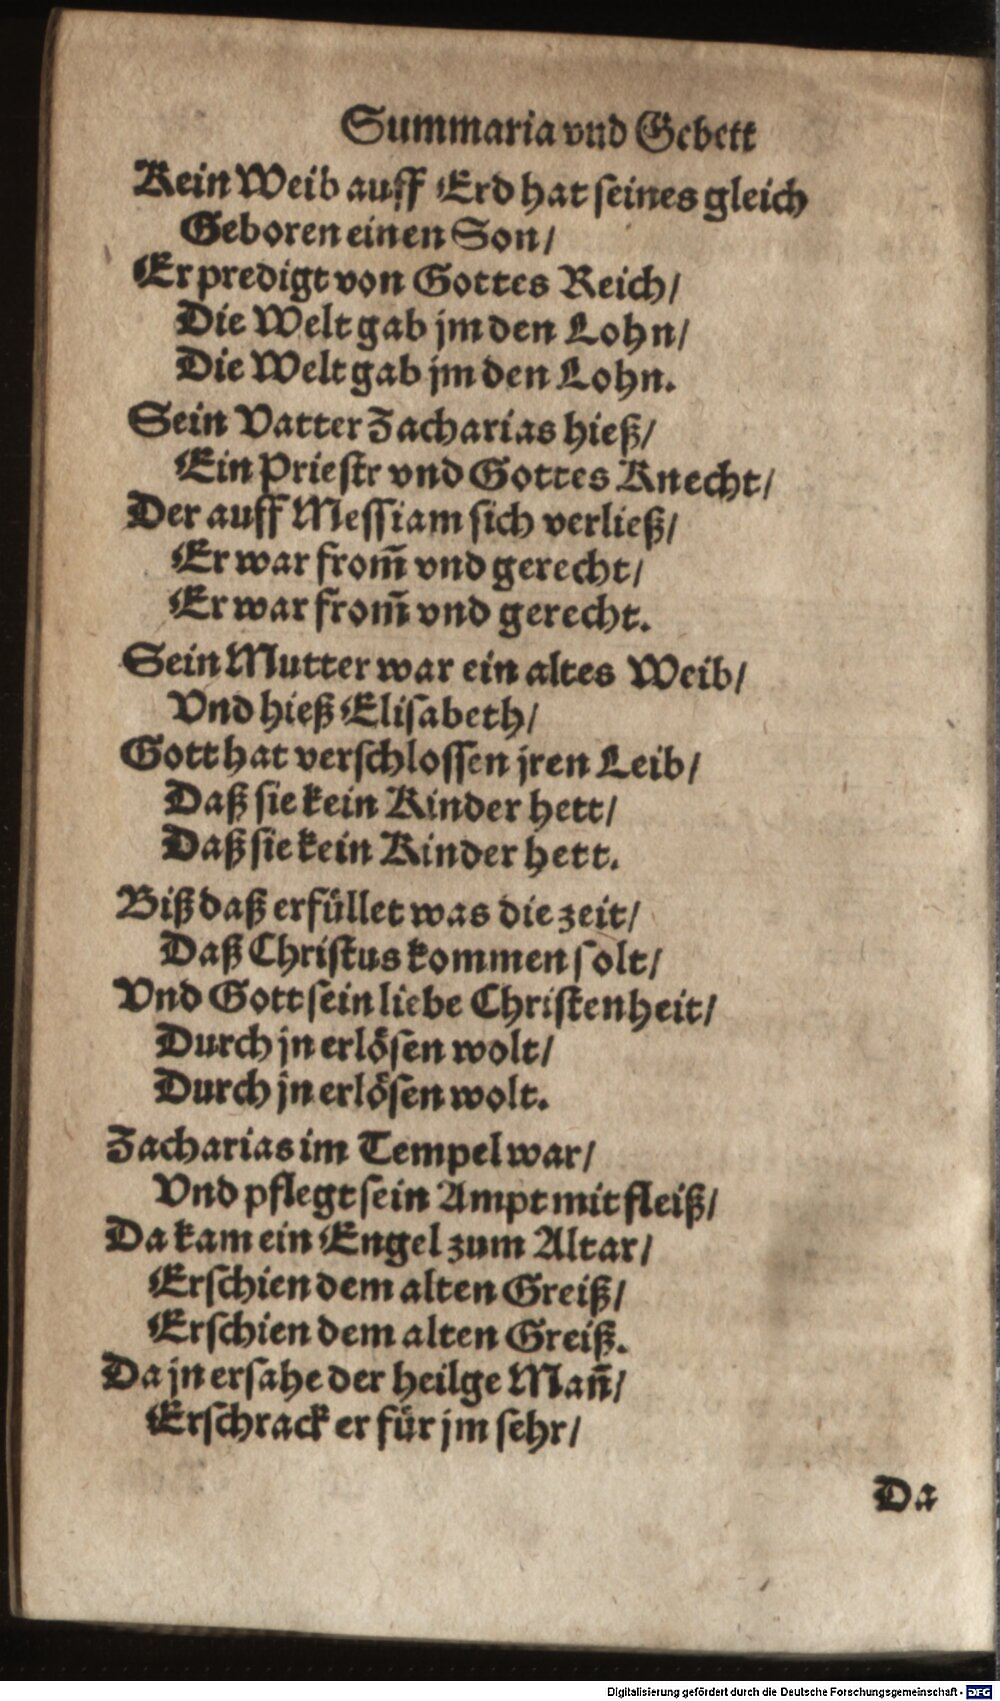 Summaria vnd Gebett
Kein Weib auff Erd hat seines gleich
Geboren einen Son/
Er predigt von Gottes Reich/
Die Welt gab jm den Lohn/
Die Welt gab jm den Lohn.
Sein Vatter Zacharias hieß/
Ein Priestr vnd Gottes Knecht/
Der auff Messiam sich verließ/
Er war from̃ vnd gerecht/
Er war from̃ vnd gerecht.
Sein Mutter war ein altes Weib/
Vnd hieß Elisabeth/
Gott hat verschlossen jren Leib/
Daß sie kein Kinder hett/
Daß sie kein Kinder hett.
Biß daß erfüllet was die zeit/
Daß Christus kommen solt/
Vnd Gott sein liebe Christenheit/
Durch jn erlösen wolt/
Durch jn erlösen wolt.
Zacharias im Tempel war/
Vnd pflegt sein Ampt mit fleiß/
Da kam ein Engel zum Altar/
Erschien dem alten Greiß/
Erschien dem alten Greiß.
Da jn ersahe der heilge Mañ/
Erschrack er für jm sehr/
Da
Digitalisierung gefördert durch die Deutsche Forschungsgemeinschaft - DFG